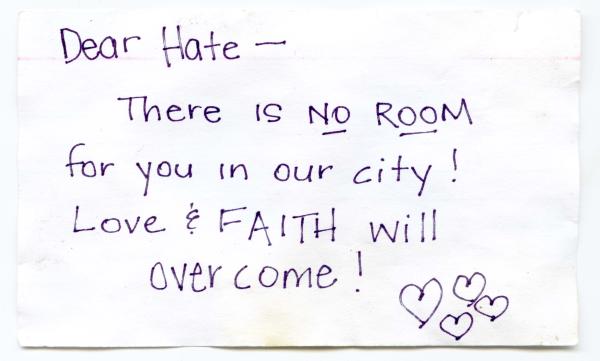 Dear Hate —
There is NO ROOM
for you in our city!
Love & FAITH will
overcome!